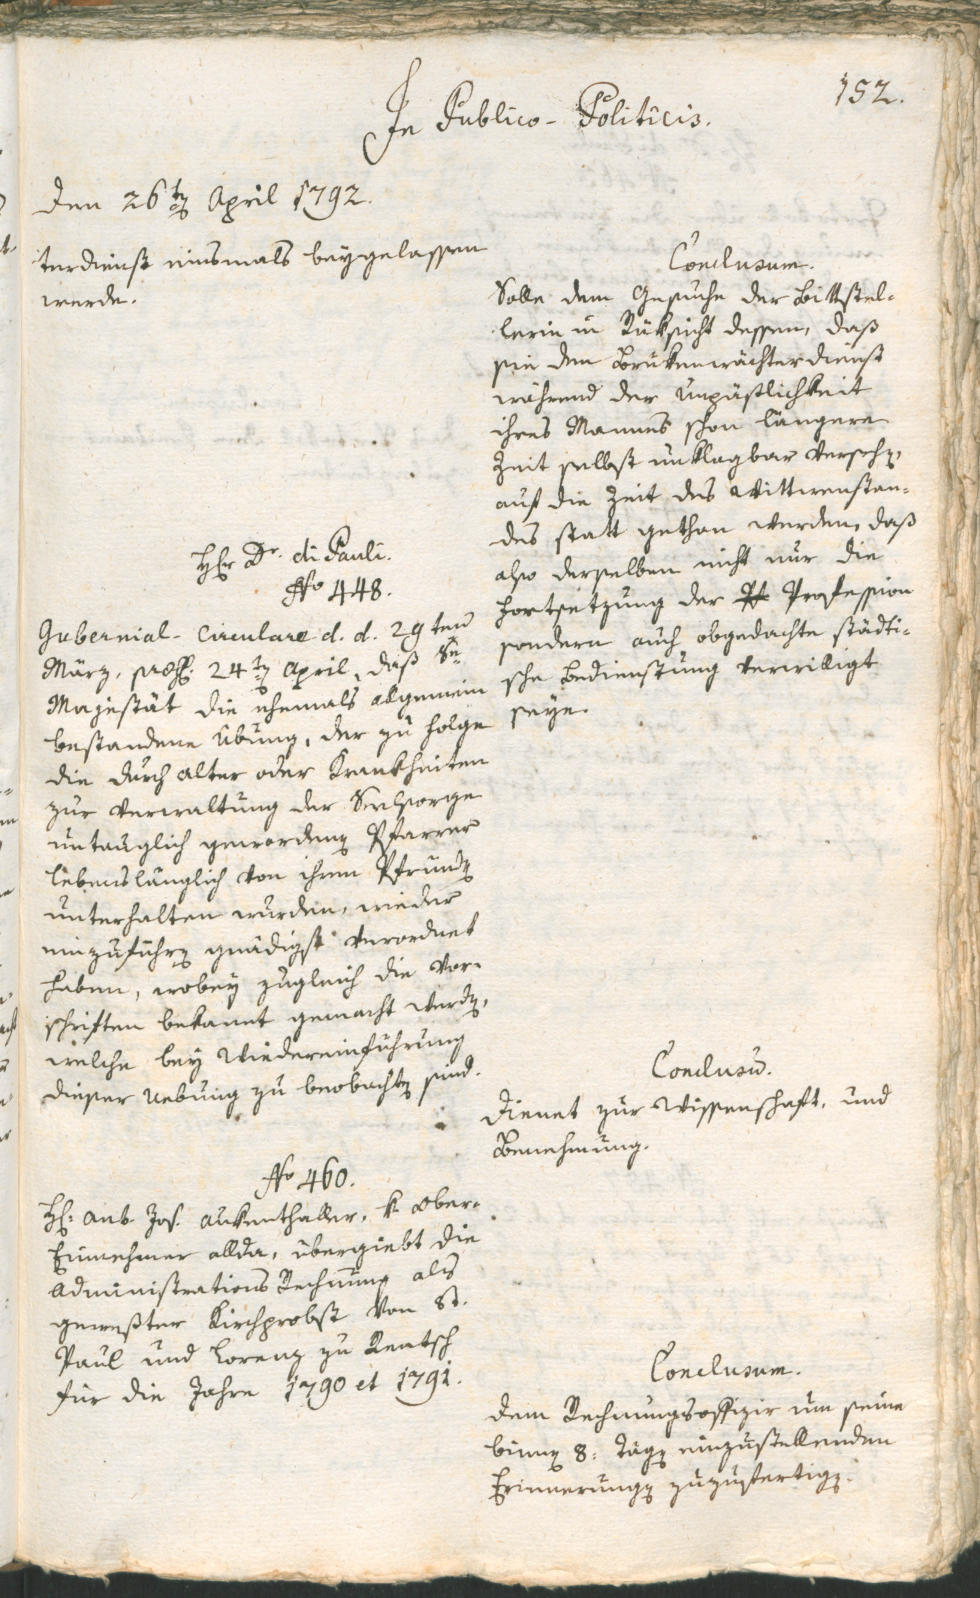 152.
In Publico-Politicis.
Den 26ten April 1792.
terdienst einsmals beygelassen
werde.
Conclusum.
Solle dem Gesuche der Bittstel=
lerin in Rüksicht dessen, daß
sie den Brukenwächterdienst
während der Unpäßlichkeit
ihres Mannes schon längere
Zeit selbst unklagbar versehen,
auf die Zeit des Wittwenstan=
des statt gethan werden, daß
also derselben nicht nur die
Fortsetzung der Profession
sondern auch obgedachte städti=
sche Bedienstung verwilligt
seye.
Hr Dr. di Pauli.
No 448.
Gubernial-Circulare d. d. 29ten
März, 24ten April, daß Se
Majestät die ehemals allgemein
bestandene Übung, der zu Folge
die durch Alter oder Krankheiten
zur Verwaltung der Seelsorge
untauglich gewordenen Pfarrer
lebenslänglich von ihren Pfründen
unterhalten wurden, wieder
einzuführen gnädigst verordnet
haben, wobey zugleich die Vor=
schriften bekannt gemacht werden,
welche bey Wiedereinführung
dieser Uebung zu beobachten sind.
Conclusum.
Dienet zur Wissenschaft, und
Benehmung.
No 460.
Hr: Ant. Jos. Aukenthaller, k. Ober=
Einnehmer allda, übergiebt die
Administrations Rechnung als
gewester Kirchprobst von St.
Paul und Lorenz zu Rentsch
für die Jahre 1790 et 1791.
Conclusum.
Dem Rechnungsoffizir um seine
binnen 8: Tagen einzustellenden
Erinnerungen zuzufertigen.